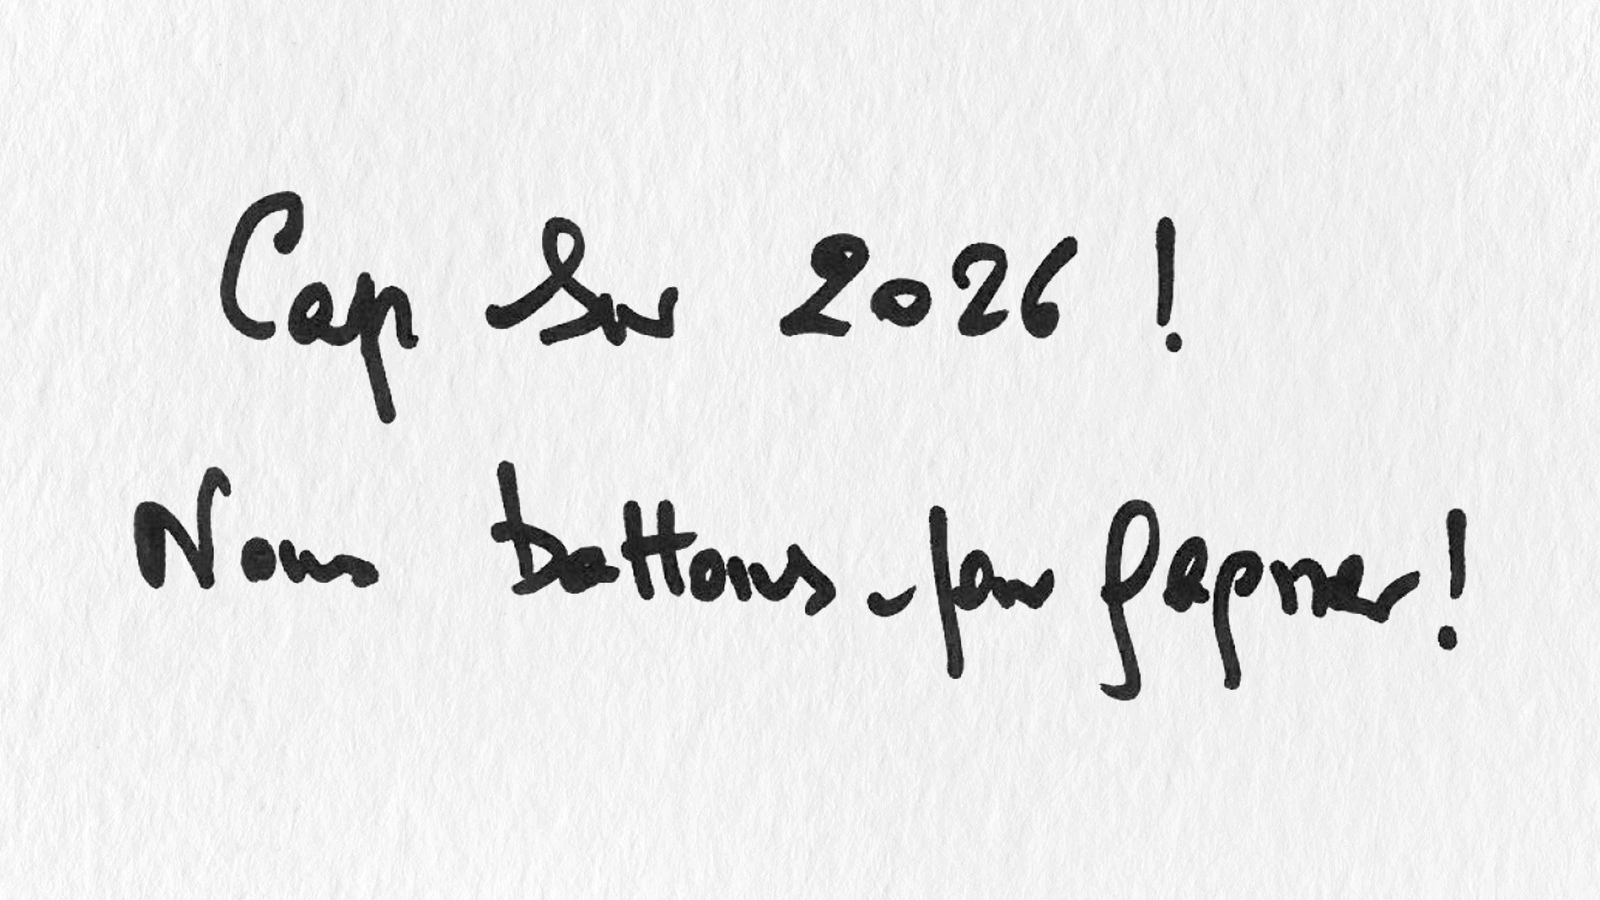 Cap sur 2026 !
Nous battons-pour gagner !